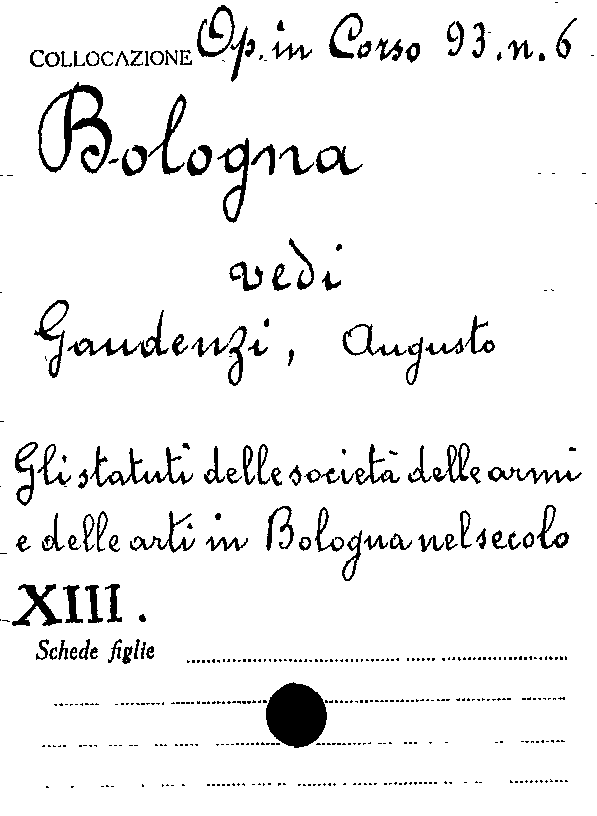 COLLOCAZIONE Op. in Corso 93. n. 6
Bologna
vedi
Gaudenzi, Augusto
Gli statuti delle società delle armi
e delle arti in Bologna nel secolo
XIII.
Schede figlie